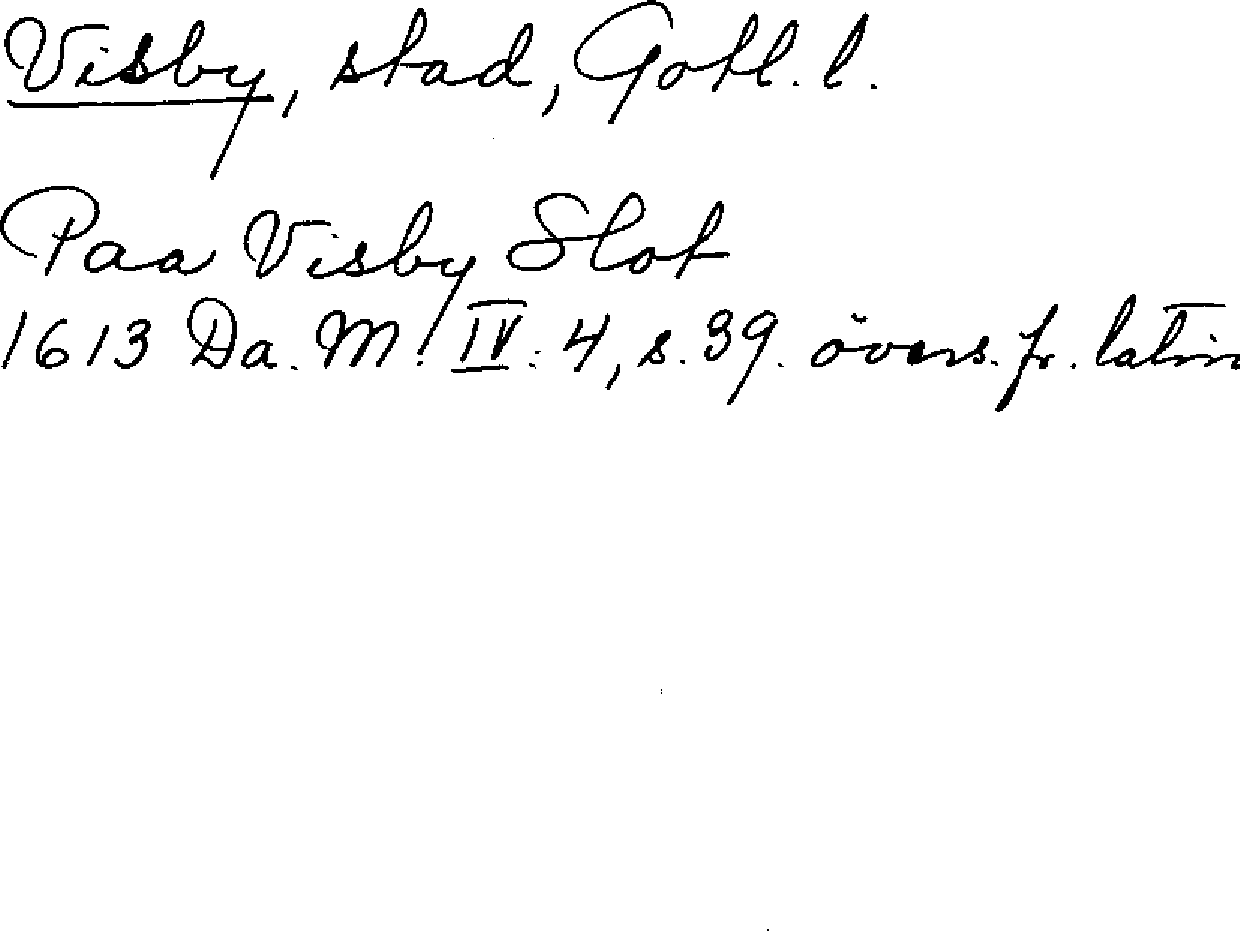 Visby, stad, Gotl. l.
Paa Visby Slot
1613 Da. M. IV: 4, s. 39. övers. fr. latin